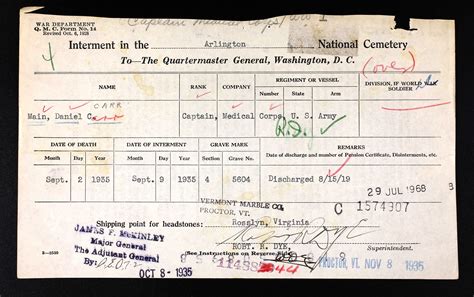 WAR DEPARTMENT
Q. M. C. Form No. 14
Revised Oct. 8, 1928
Captain Medical Corps, WW I
Interment in the Arlington National Cemetery
4
To—The Quartermaster General, Washington, D. C.
(over)
NAME RANK COMPANY REGIMENT OR VESSEL DIVISION, IF WORLD WAR SOLDIER
Number State Arm
CARR
Main, Daniel Carr, Captain, Medical Corps, U. S. Army
DATE OF DEATH DATE OF INTERMENT SECTION GRAVE NO. REMARKS
Month Day Year Month Day Year Sect. Grave No. Date of discharge and number of Pension Certificate, Disinterments, etc.
Sept. 2 1935 Sept. 9 1935 4 5604 Discharged 8/15/19
29 JUL 1968
VERMONT MARBLE CO.
PROCTOR, VT.
C 1574907
Shipping point for headstone: Rosslyn, Virginia
JAMES F. McKINLEY
Major General
The Adjutant General
By:
ROBT. R. DYE, Superintendent.
(See Instructions on Reverse Side)
OCT 8 - 1935
PROCTOR, VT. NOV 8 1935